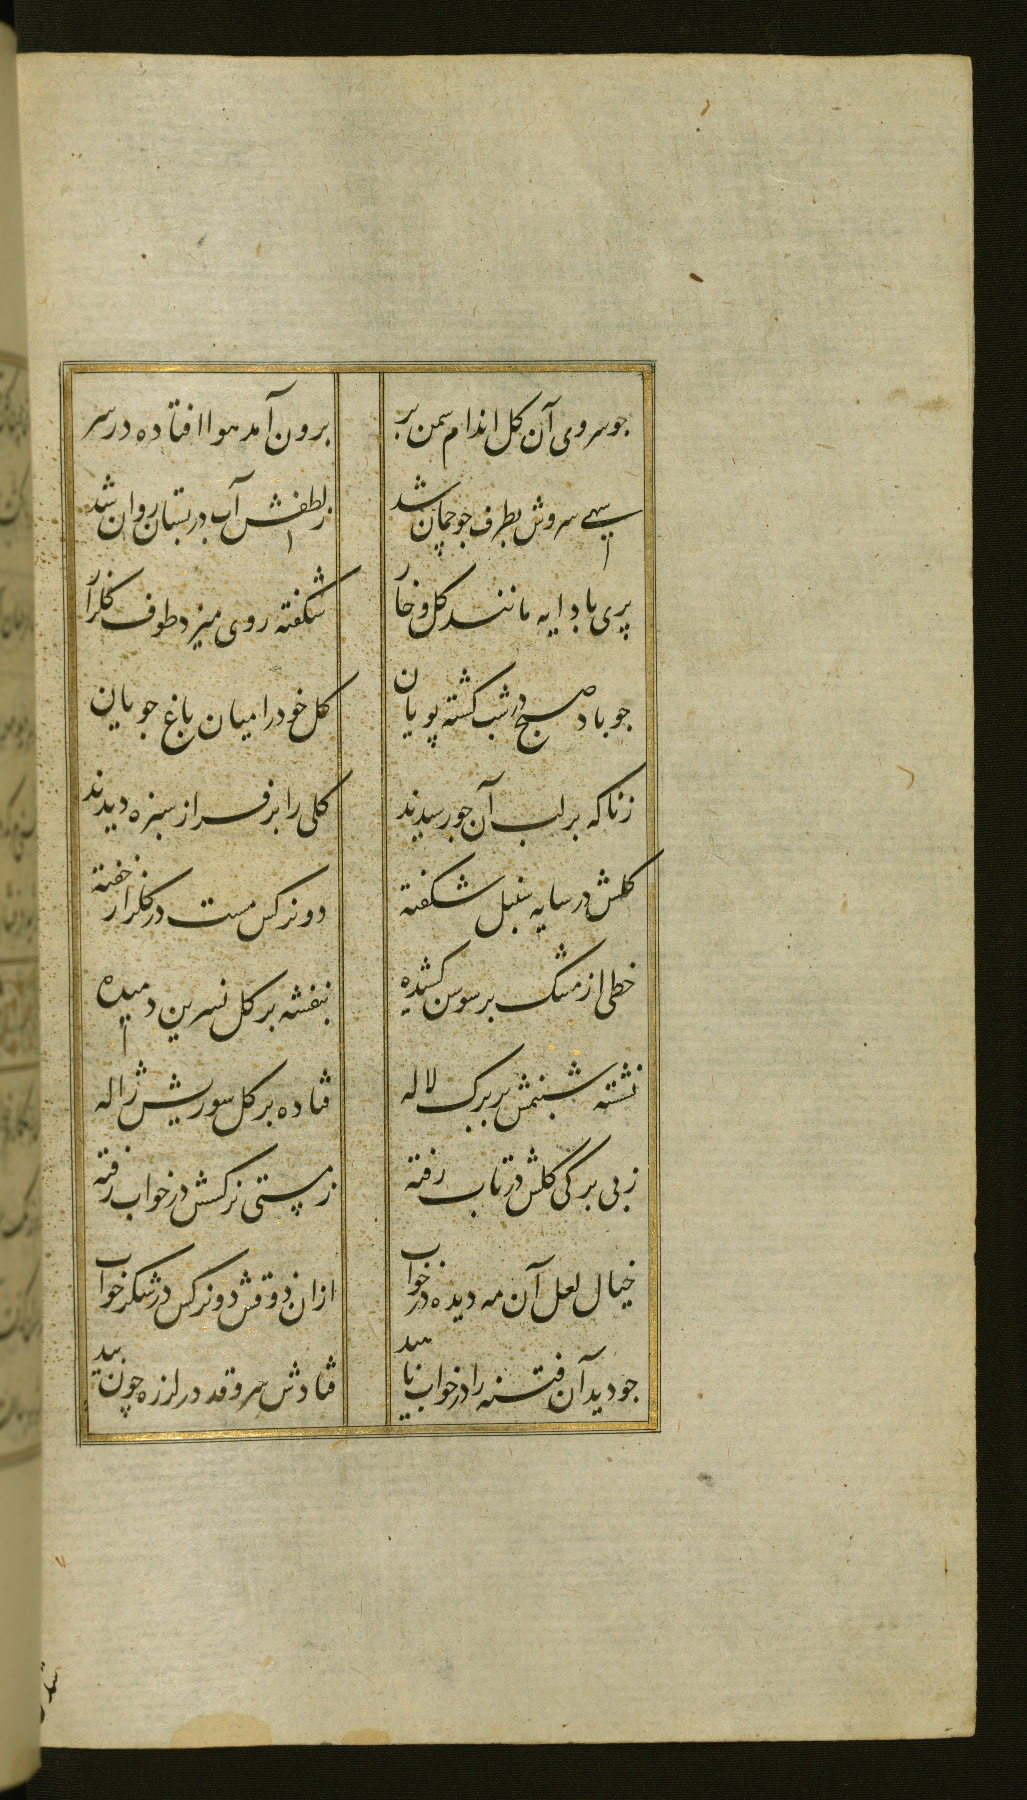 جو سروی آن کل اندام سمن بر برون آمد هوا افتاده در سر
سهی سروش بطرف جو چمان شد ز لطفش آب در بستان روان شد
پری با دایه مانند کل و خار شکفته روی میزد طوف کلزار
جو باد صبح در شب کشته پویان کل خود را میان باغ جویان
ز ناکه بر لب آن جو رسیدند کلی را بر فراز سبزه دیدند
کلش در سایه سنبل شکفته دو نرکس مست در کلزار خفته
خطی از مشک بر سوسن کشیده بنفشه بر کل نسرین دمیده
نشته شبنمش بر برک لاله فتاده بر کل سوریش ژاله
ز بی برکی کلش در تاب رفته ز مستی نرکسش در خواب رفته
خیال لعل آن مه دیده در خواب ازان ذوقش دو نرکس در شکر خواب
جو دید آن فتنه را در خواب ناهید فتادش سرو قد در لرزه چون بید